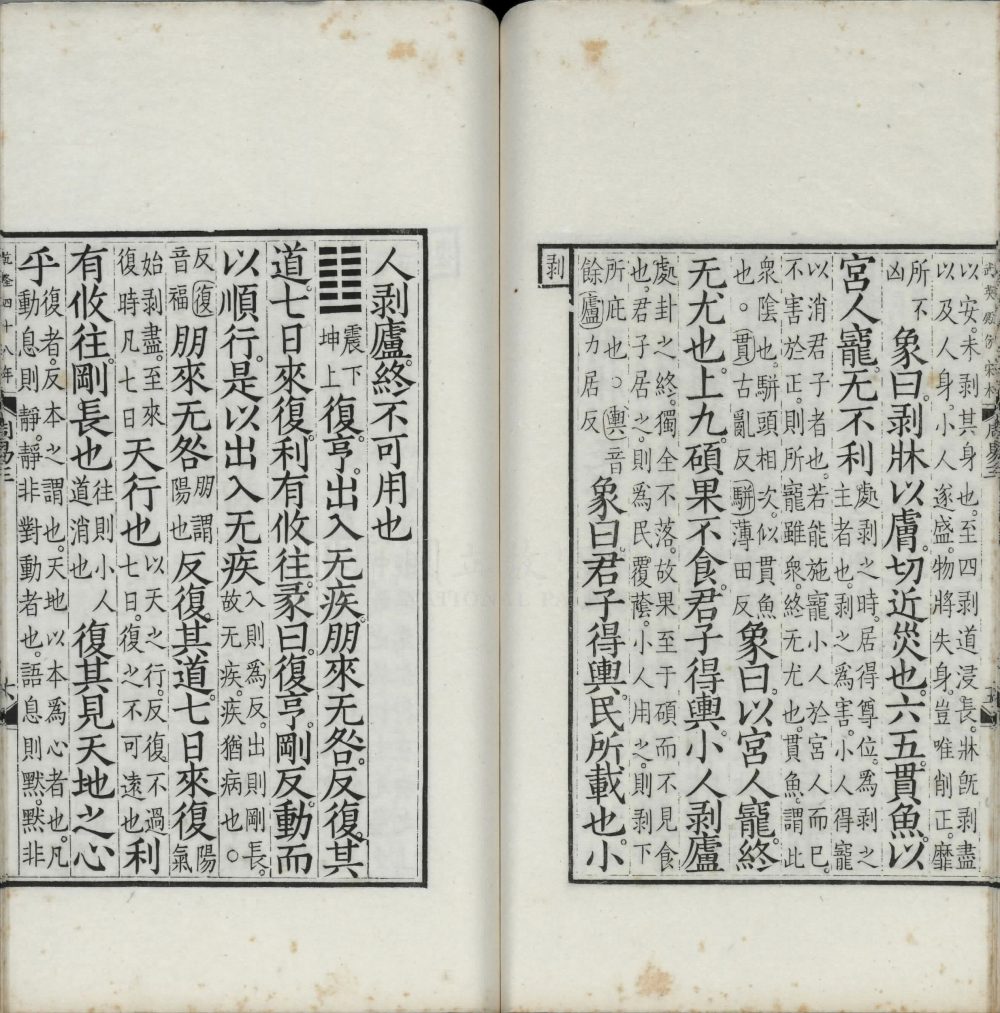 以安。未剥其身也。至四剥道浸長。牀旣剥盡
以及人身。小人遂盛。物將失身。豈唯削正。靡
所不凶 象曰。剥牀以膚。切近災也。六五貫魚以
宮人寵。无不利 處剥之時。居得尊位。爲剥之主者也。剥之爲害。小人得寵
以消君子者也。若能施寵小人於宮人而已。
不害於正。則所寵雖衆。終无尤也。貫魚。謂此
衆陰也。駢頭相次。似貫魚也。○貫古亂反駢薄田反 象曰。以宮人寵。終
无尤也。上九。碩果不食。君子得輿。小人剥廬
處卦之終。獨全不落。故果至于碩而不見食
也。君子居之。則爲民覆蔭。小人用之。則剥下
所庇也。○輿音餘廬力居反 象曰。君子得輿。民所載也。小
剥
人剥廬。終不可用也
䷗ 震下坤上 復。亨。出入无疾。朋來无咎。反復其
道。七日來復。利有攸往。彖曰。復。亨。剛反動而
以順行。是以出入无疾 入則爲反。出則剛長。故无疾。疾猶病也。○
反復音福 朋來无咎 朋謂陽也 反復其道。七日來復 陽氣
始剥盡。至來復時凡七日 天行也 以天之行。反復不過七日。復之不可遠也 利
有攸往。剛長也 往則小人道消也 復其見天地之心
乎 復者。反本之謂也。天地以本爲心者也。凡動息則靜。靜非對動者也。語息則黙。黙非
乾隆四十八年
周易三